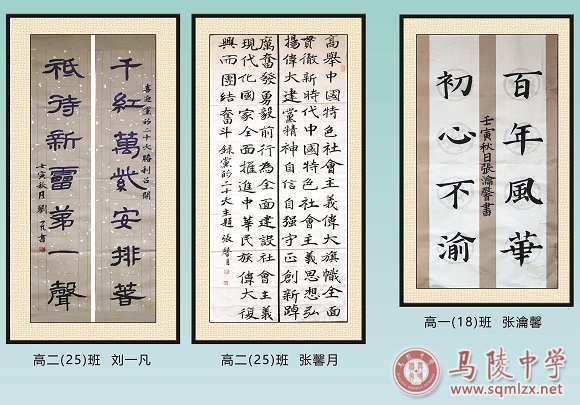 千紅萬紫安排著
喜迎黨的二十大勝利召開
祇待新雷第一聲
壬寅秋月 劉一凡書
高二(25)班 刘一凡
高舉中國特色社會主義偉大旗幟全面
貫徹新時代中國特色社會主義思想弘
揚偉大建黨精神自信自强守正創新踔
厲奮發勇毅前行為全面建設社會主義
現代化國家全面推進中華民族偉大復
興而團結奮斗 錄黨的二十大主題 張馨月
高二(25)班 张馨月
百年風華
初心不渝
壬寅秋日張瀹馨書
高一(18)班 张瀹馨
马陵中学
www.sqmlzx.net